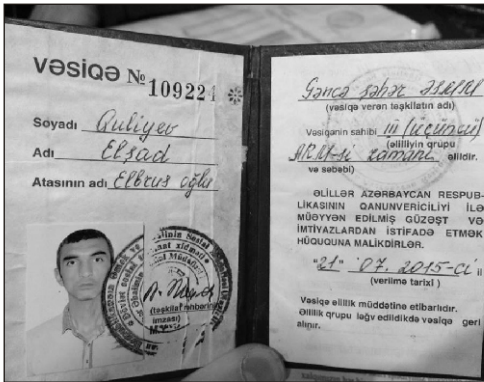 VƏSİQƏ № 109224
Soyadı Quliyev
Adı Elşad
Atasının adı Elbrus oğlu
(təşkilat rəhbərinin
imzası)
Gəncə şəhər ƏSMM
(vəsiqə verən təşkilatın adı)
Vəsiqənin sahibi III (üçüncü)
(əlilliyin qrupu
zamanı əlildir.
və səbəbi)
ƏLİLLƏR AZƏRBAYCAN RESPUB-
LİKASININ QANUNVERİCİLİYİ İLƏ
MÜƏYYƏN EDİLMİŞ GÜZƏŞT VƏ
İMTİYAZLARDAN İSTİFADƏ ETMƏK
HÜQUQUNA MALİKDİRLƏR.
"21" 07. 2015-ci il
(verilmə tarixi)
Vəsiqə əlillik müddətinə etibarlıdır.
Əlillik qrupu ləğv edildikdə vəsiqə geri
alınır.